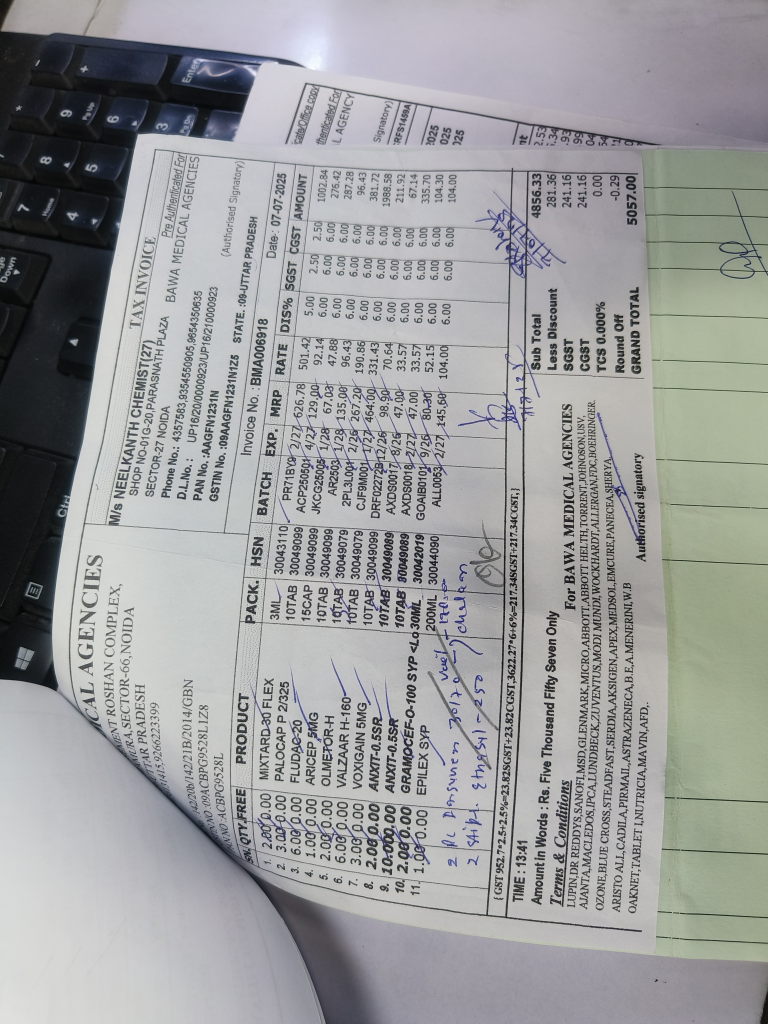 CAL AGENCIES
ROSHAN COMPLEX,
SECTOR-66, NOIDA
UTTAR PRADESH
9266223399
142/20b/142/21B/2014/GBN
09ACBPG9528L1Z8
ACBPG9528L
TAX INVOICE
M/s NEELKANTH CHEMIST(27)
Pre Authenticated For
SHOP NO-01G-20,PARASNATH PLAZA
BAWA MEDICAL AGENCIES
SECTOR-27 NOIDA
Phone No.: 4357583,9354550905,9654350635
D.L.No.: UP16/20/0000923/UP16/210000923
PAN No. :AAGFN1231N
(Authorised Signatory)
GSTIN No. :09AAGFN1231N1Z5 STATE. :09-UTTAR PRADESH
Invoice No. : BMA006918 Date: 07-07-2025
SN. QTY. FREE PRODUCT PACK. HSN BATCH EXP. MRP RATE DIS% SGST CGST AMOUNT
1. 2.00 0.00 MIXTARD-30 FLEX 3ML 30043110 PR71BY9 2/27 626.78 501.42 5.00 2.50 2.50 1002.84
2. 3.00 0.00 PALOCAP P 2/325 10TAB 30049099 ACP25050 4/27 129.00 92.14 6.00 6.00 6.00 276.42
3. 6.00 0.00 FLUDAC-20 15CAP 30049099 JKCG2500 1/28 67.03 47.88 6.00 6.00 6.00 287.28
4. 1.00 0.00 ARICEP 5MG 10TAB 30049099 AR2503 1/28 135.00 96.43 6.00 6.00 6.00 96.43
5. 2.00 0.00 OLMEFOR-H 10TAB 30049079 2PL3L001 2/26 267.20 190.86 6.00 6.00 6.00 381.72
6. 6.00 0.00 VALZAAR H-160 10TAB 30049079 CJF9M001 1/27 464.00 331.43 6.00 6.00 6.00 1988.58
7. 3.00 0.00 VOXIGAIN 5MG 10TAB 30049099 DRF02272 12/26 98.90 70.64 6.00 6.00 6.00 211.92
8. 2.00 0.00 ANXIT-0.5SR 10TAB 30049089 AXDS0017 8/26 47.00 33.57 6.00 6.00 6.00 67.14
9. 10.00 0.00 ANXIT-0.5SR 10TAB 30049089 AXDS0018 2/27 47.00 33.57 6.00 6.00 6.00 335.70
10. 2.00 0.00 GRAMOCEF-O-100 SYP <Lo 30ML 30042019 GOAIB0101 9/26 80.30 52.15 6.00 6.00 6.00 104.30
11. 1.00 0.00 EPILEX SYP 200ML 30044090 ALL0053 2/27 145.60 104.00 6.00 6.00 6.00 104.00
{ GST 952.7*2.5+2.5%=23.82SGST+23.82CGST,3622.27*6+6%=217.34SGST+217.34CGST,}
TIME : 13:41
Sub Total 4856.33
Less Discount 281.36
SGST 241.16
CGST 241.16
TCS 0.000% 0.00
Round Off -0.29
GRAND TOTAL 5057.00
Amount In Words : Rs. Five Thousand Fifty Seven Only
Terms & Conditions
For BAWA MEDICAL AGENCIES
LUPIN,DR REDDYS,SANOFI,MSD,GLENMARK,MICRO,ABBOTT,ABBOTT HELTH,TORRENT,JOHNSON,USV,
AJANTA,MACLEDOS,IPCA,LUNDBECK,ZUVENTUS,MODI MUNDI,WOCKHARDT,ALLERGAN,FDC,BOEHRINGER
OZONE,BLUE CROSS,STEADFAST,SERDIA,AKSIGEN,APEX,MEDSOL,EMCURE,PANECEA,SHERYA
ARISTO ALL,CADILA,PIRMAIL,ASTRAZENECA,B.E.A.MENERINI,W.B
OAKNET,TABLET I,NUTRICIA,MAVIN,AFD.
Authorised signatory